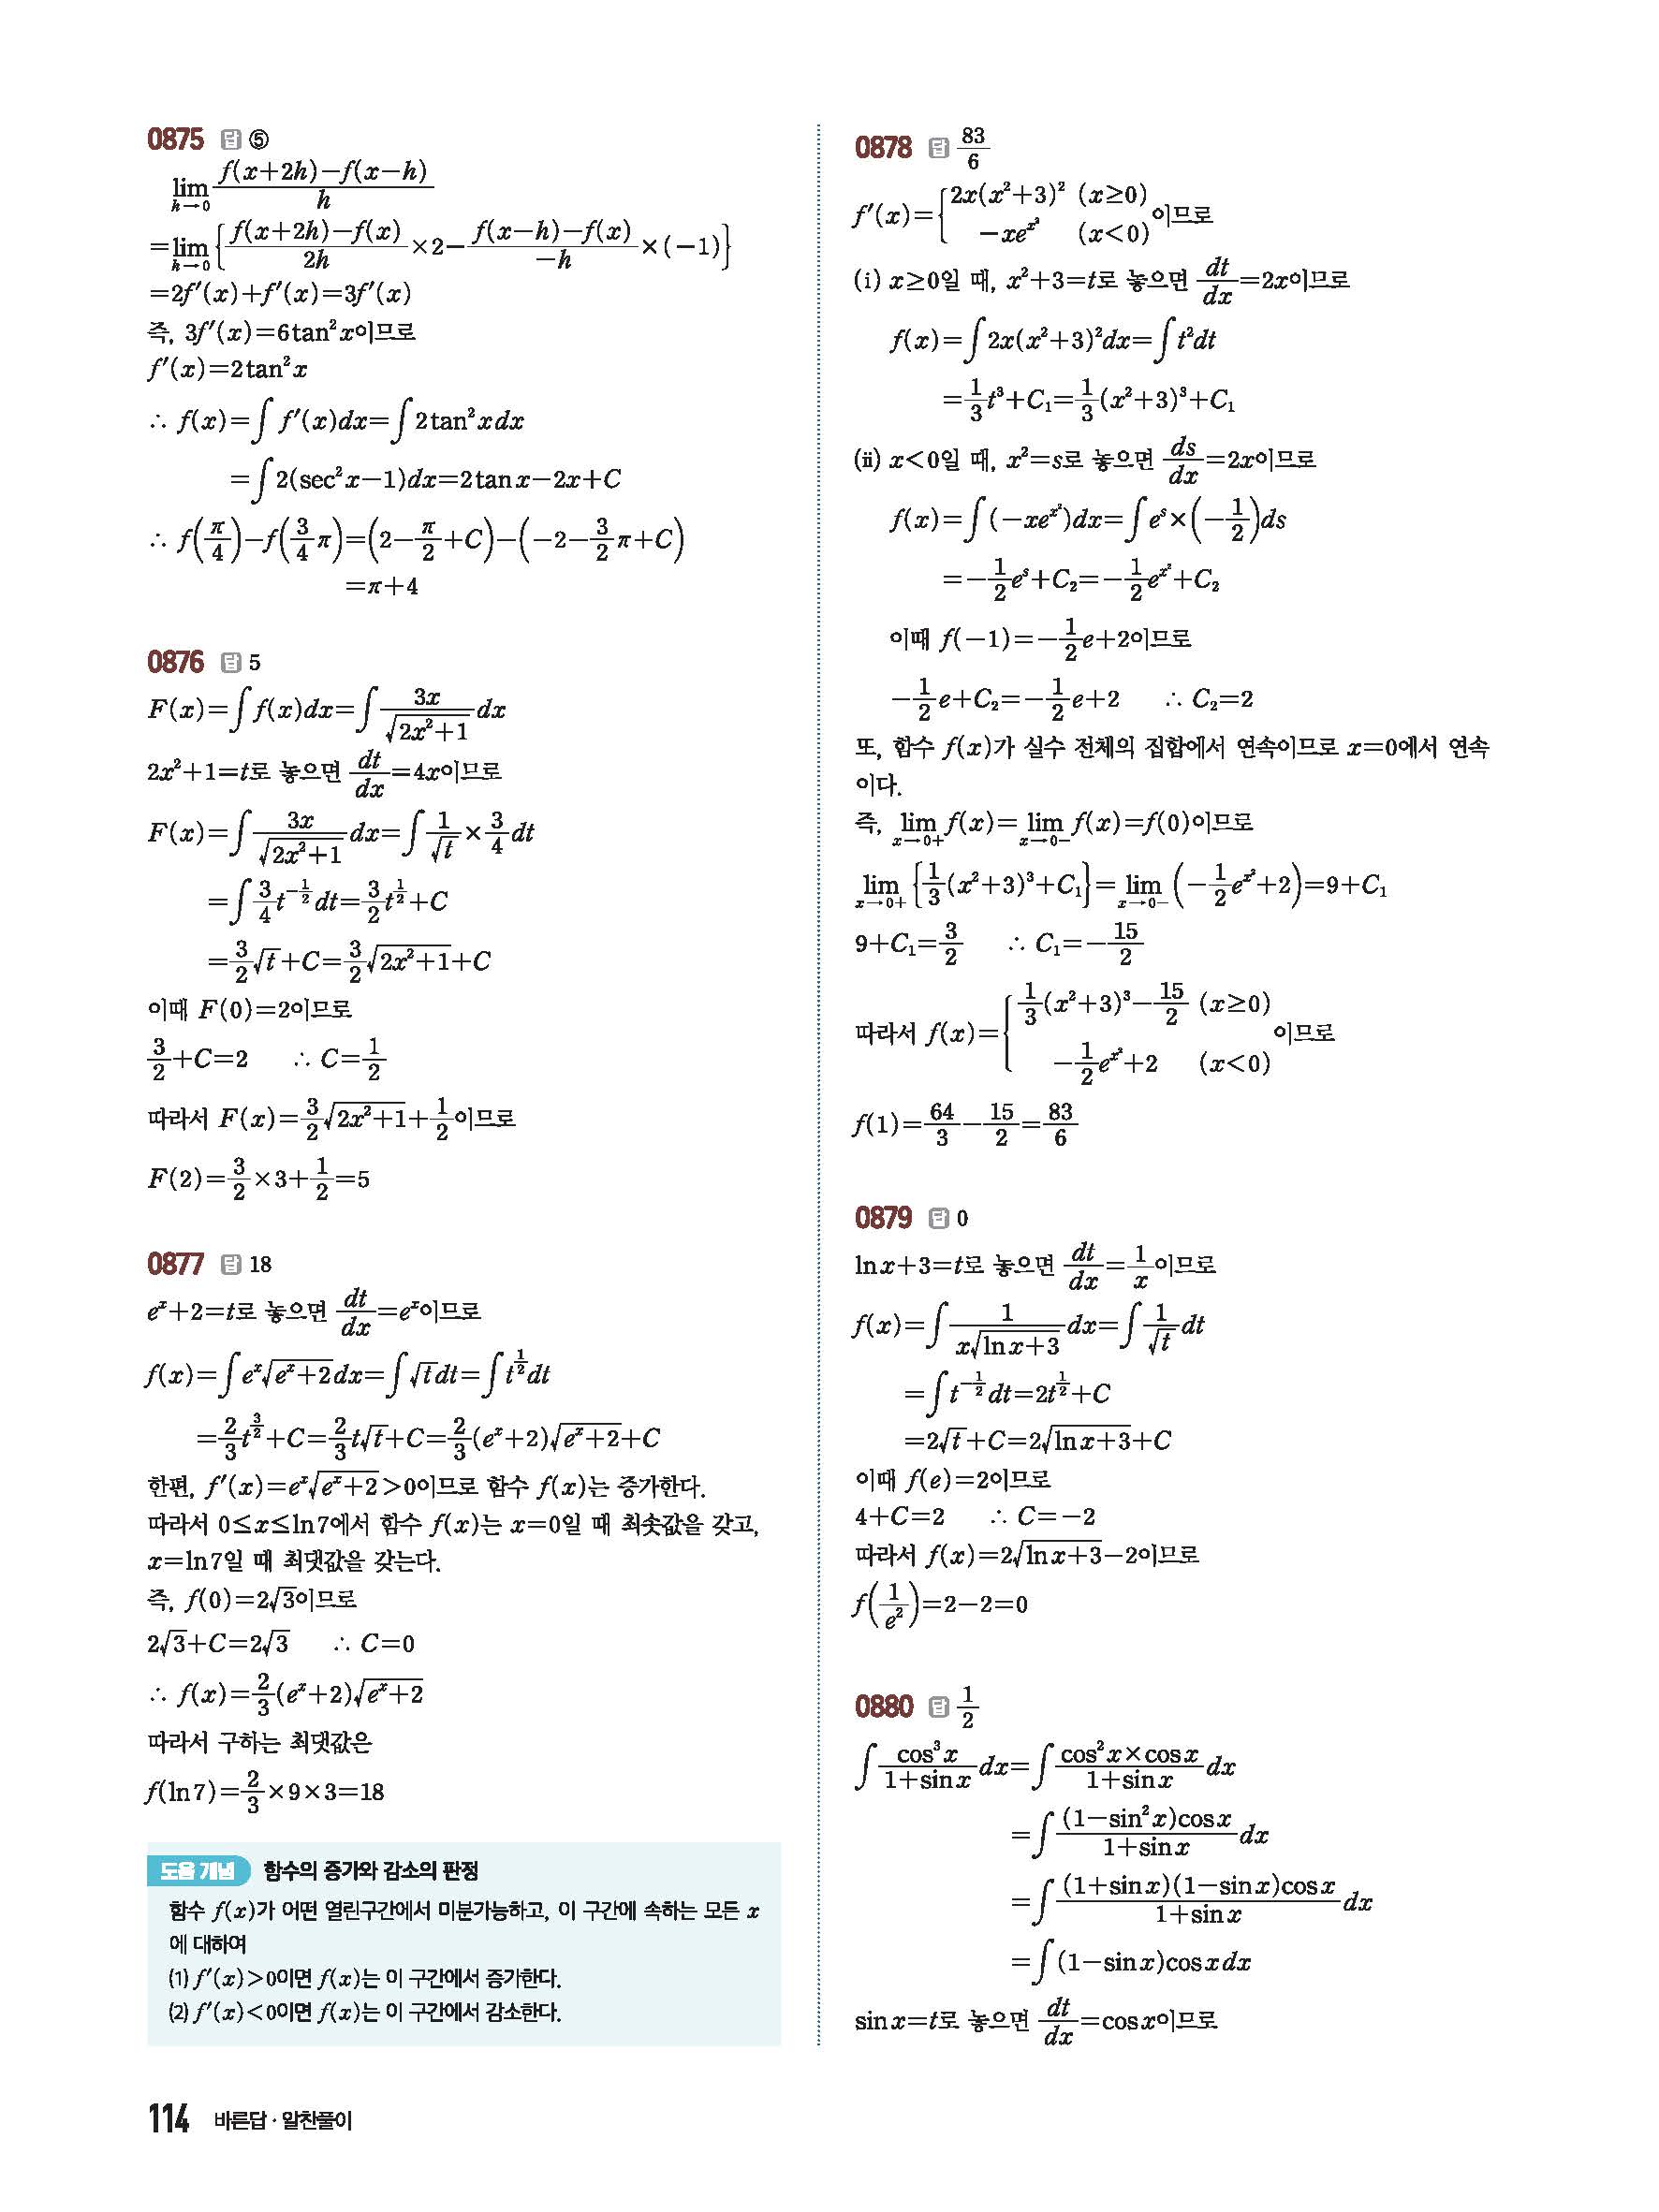 0875 답 ⑤
lim_{h→0} \frac{f(x+2h)-f(x-h)}{h}
=lim_{h→0} {\frac{f(x+2h)-f(x)}{2h}×2-\frac{f(x-h)-f(x)}{-h}×(-1)}
=2f'(x)+f'(x)=3f'(x)
즉, 3f'(x)=6tan²x이므로
f'(x)=2tan²x
∴ f(x)=∫f'(x)dx=∫2tan²xdx
=∫2(sec²x-1)dx=2tanx-2x+C
∴ f(\frac{π}{4})-f(\frac{3}{4}π)=(2-\frac{π}{2}+C)-(-2-\frac{3}{2}π+C)
=π+4
0876 답 5
F(x)=∫f(x)dx=∫\frac{3x}{\sqrt{2x²+1}}dx
2x²+1=t로 놓으면 \frac{dt}{dx}=4x이므로
F(x)=∫\frac{3x}{\sqrt{2x²+1}}dx=∫\frac{1}{\sqrt{t}}×\frac{3}{4}dt
=∫\frac{3}{4}t^{-\frac{1}{2}}dt=\frac{3}{2}t^{\frac{1}{2}}+C
=\frac{3}{2}\sqrt{t}+C=\frac{3}{2}\sqrt{2x²+1}+C
이때 F(0)=2이므로
\frac{3}{2}+C=2 ∴ C=\frac{1}{2}
따라서 F(x)=\frac{3}{2}\sqrt{2x²+1}+\frac{1}{2}이므로
F(2)=\frac{3}{2}×3+\frac{1}{2}=5
0877 답 18
e^x+2=t로 놓으면 \frac{dt}{dx}=e^x이므로
f(x)=∫e^x\sqrt{e^x+2}dx=∫\sqrt{t}dt=∫t^{\frac{1}{2}}dt
=\frac{2}{3}t^{\frac{3}{2}}+C=\frac{2}{3}t\sqrt{t}+C=\frac{2}{3}(e^x+2)\sqrt{e^x+2}+C
한편, f'(x)=e^x\sqrt{e^x+2}>0이므로 함수 f(x)는 증가한다.
따라서 0≤x≤ln7에서 함수 f(x)는 x=0일 때 최솟값을 갖고,
x=ln7일 때 최댓값을 갖는다.
즉, f(0)=2\sqrt{3}이므로
2\sqrt{3}+C=2\sqrt{3} ∴ C=0
∴ f(x)=\frac{2}{3}(e^x+2)\sqrt{e^x+2}
따라서 구하는 최댓값은
f(ln7)=\frac{2}{3}×9×3=18
도움 개념 함수의 증가와 감소의 판정
함수 f(x)가 어떤 열린구간에서 미분가능하고, 이 구간에 속하는 모든 x
에 대하여
(1) f'(x)>0이면 f(x)는 이 구간에서 증가한다.
(2) f'(x)<0이면 f(x)는 이 구간에서 감소한다.
0878 답 \frac{83}{6}
f'(x)={2x(x²+3)² (x≥0)
-xe^{x²} (x<0) 이므로
(i) x≥0일 때, x²+3=t로 놓으면 \frac{dt}{dx}=2x이므로
f(x)=∫2x(x²+3)²dx=∫t²dt
=\frac{1}{3}t³+C₁=\frac{1}{3}(x²+3)³+C₁
(ii) x<0일 때, x²=s로 놓으면 \frac{ds}{dx}=2x이므로
f(x)=∫(-xe^{x²})dx=∫e^s×(-\frac{1}{2})ds
=-\frac{1}{2}e^s+C₂=-\frac{1}{2}e^{x²}+C₂
이때 f(-1)=-\frac{1}{2}e+2이므로
-\frac{1}{2}e+C₂=-\frac{1}{2}e+2 ∴ C₂=2
또, 함수 f(x)가 실수 전체의 집합에서 연속이므로 x=0에서 연속
이다.
즉, lim_{x→0+} f(x)=lim_{x→0-} f(x)=f(0)이므로
lim_{x→0+} {\frac{1}{3}(x²+3)³+C₁}=lim_{x→0-} (-\frac{1}{2}e^{x²}+2)=9+C₁
9+C₁=\frac{3}{2} ∴ C₁=-\frac{15}{2}
따라서 f(x)={\frac{1}{3}(x²+3)³-\frac{15}{2} (x≥0)
-\frac{1}{2}e^{x²}+2 (x<0) 이므로
f(1)=\frac{64}{3}-\frac{15}{2}=\frac{83}{6}
0879 답 0
lnx+3=t로 놓으면 \frac{dt}{dx}=\frac{1}{x}이므로
f(x)=∫\frac{1}{x\sqrt{lnx+3}}dx=∫\frac{1}{\sqrt{t}}dt
=∫t^{-\frac{1}{2}}dt=2t^{\frac{1}{2}}+C
=2\sqrt{t}+C=2\sqrt{lnx+3}+C
이때 f(e)=2이므로
4+C=2 ∴ C=-2
따라서 f(x)=2\sqrt{lnx+3}-2이므로
f(\frac{1}{e²})=2-2=0
0880 답 \frac{1}{2}
∫\frac{cos³x}{1+sinx}dx=∫\frac{cos²x×cosx}{1+sinx}dx
=∫\frac{(1-sin²x)cosx}{1+sinx}dx
=∫\frac{(1+sinx)(1-sinx)cosx}{1+sinx}dx
=∫(1-sinx)cosxdx
sinx=t로 놓으면 \frac{dt}{dx}=cosx이므로
114 바른답·알찬풀이